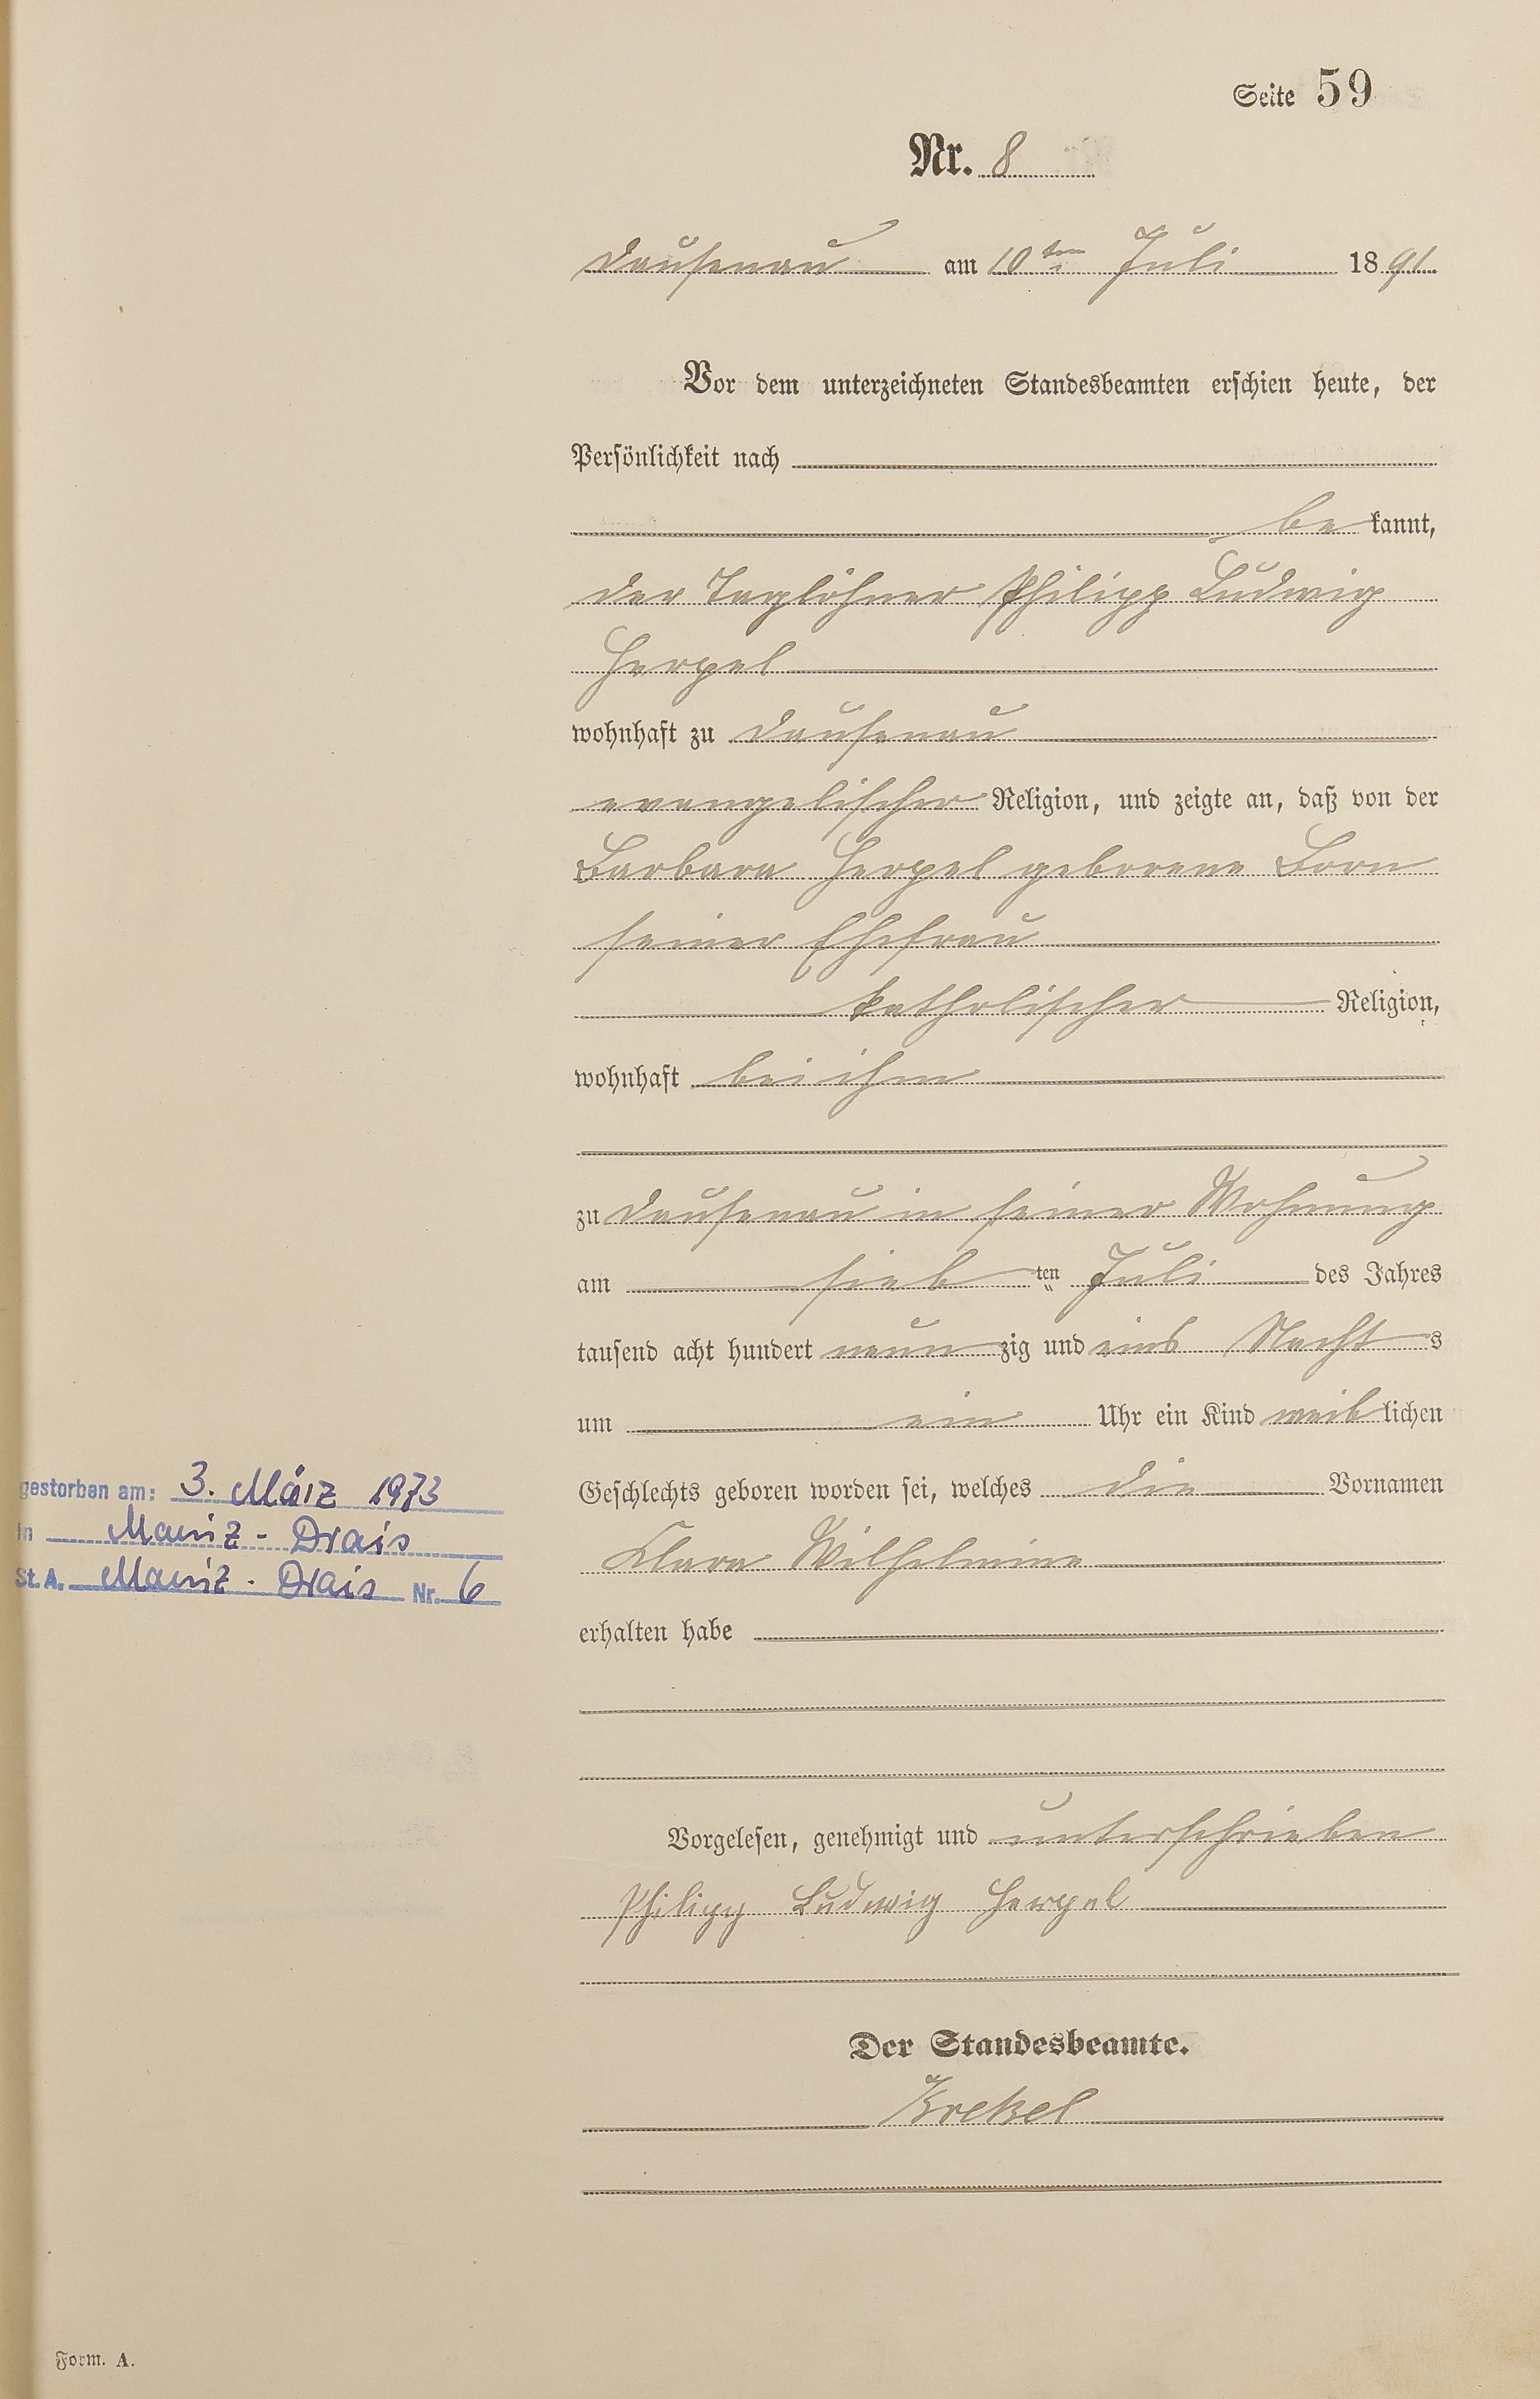 Seite 59
Nr. 8
Dausenau am 10ten Juli 1891
Vor dem unterzeichneten Standesbeamten erschien heute, der
Persönlichkeit nach
be kannt,
der Taglöhner Philipp Ludwig
Herpel
wohnhaft zu Dausenau
evangelischer Religion, und zeigte an, daß von der
Barbara Herpel geborene Born
seiner Ehefrau
katholischer Religion,
wohnhaft bei ihm
zu Dausenau in seiner Wohnung
am sieb ten Juli des Jahres
tausend acht hundert neun zig und eins Nacht s
um ein Uhr ein Kind weib lichen
Geschlechts geboren worden sei, welches die Vornamen
Klara Wilhelmine
erhalten habe
Vorgelesen, genehmigt und unterschrieben
Philipp Ludwig Herpel
Der Standesbeamte.
Krekel
gestorben am: 3. März 1973
in Mainz - Drais
St. A. Mainz - Drais Nr. 6
Form. A.